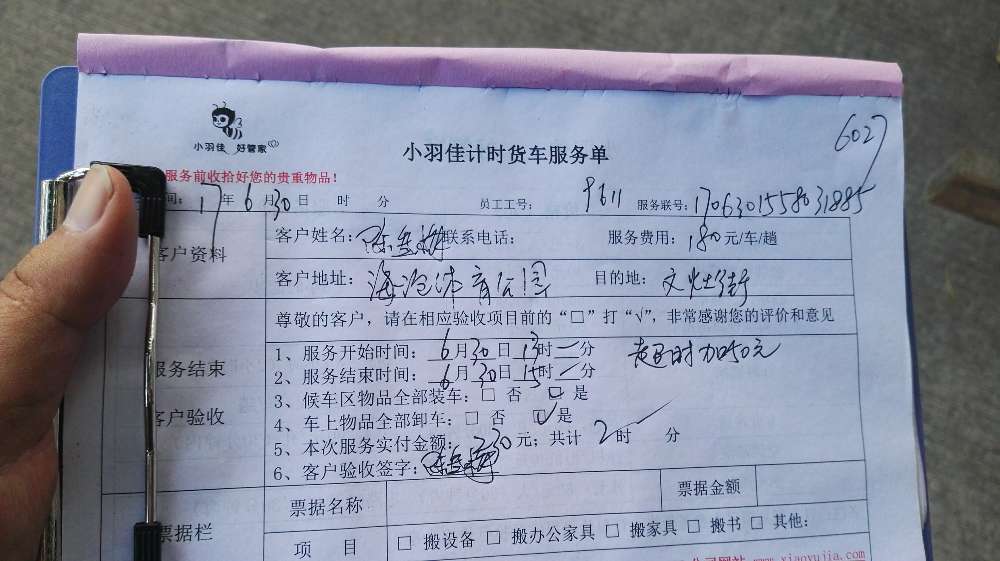 小羽佳 好管家
小羽佳计时货车服务单
6027
服务前收拾好您的贵重物品！
间：17年6月30日 时 分 员工工号：9611 服务联号：1706301558031885
客户资料
客户姓名：陈 联系电话： 服务费用：180元/车/趟
客户地址：海沧体育公园 目的地：文灶街
尊敬的客户，请在相应验收项目前的“□”打“√”，非常感谢您的评价和意见
服务结束
客户验收
1、服务开始时间：6月30日13时一分 超时加50元
2、服务结束时间：6月30日15时一分
3、候车区物品全部装车：□ 否 ☑ 是
4、车上物品全部卸车：□ 否 ☑ 是
5、本次服务实付金额：230元；共计 2时 分
6、客户验收签字：陈
票据栏
票据名称 票据金额
项 目 □ 搬设备 □ 搬办公家具 □ 搬家具 □ 搬书 □ 其他：
公司网站 www.xiaoyujia.com